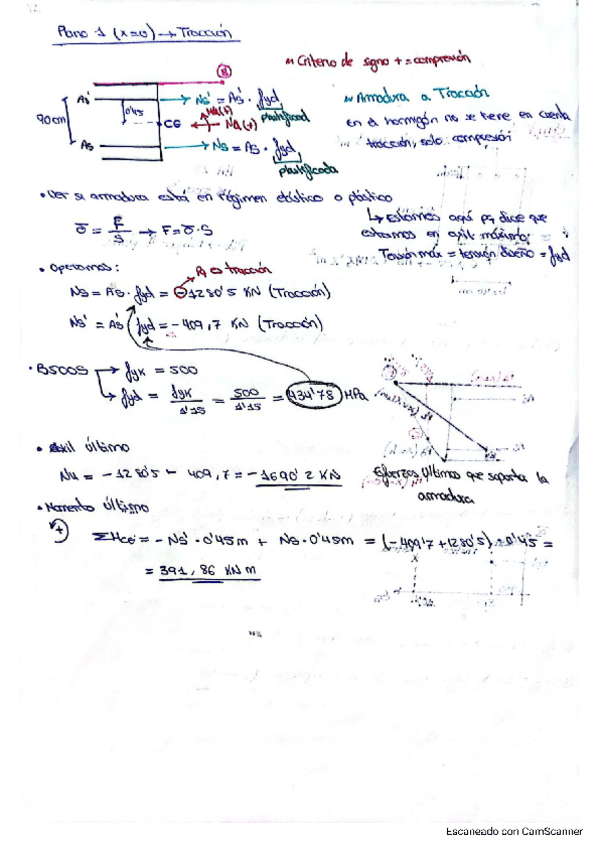 Plano 1 (x=∞) → Tracción
" Criterio de signo + = compresión
As' → Ns' = As' · fyd
plastificada
" Armadura a Tracción
en el hormigón no se tiene en cuenta
tracción, solo compresión
90cm 0'45 CG Nu(+)
As → Ns = As · fyd
plastificada
• Ver si armadura está en régimen elástico o plástico
σ = F/S → F = σ · S
↳ Estamos aquí pq dice que
estamos en axil máximo;
Tensión máx = tensión diseño = fyd
• Operamos: Pq es tracción
Ns = As · fyd = -1280'5 KN (Tracción)
Ns' = As' fyd = -409,7 KN (Tracción)
· B500S → fyk = 500
↳ fyd = fyk/1'15 = 500/1'15 = 434'78 MPa
• Axil último
Nu = -1280'5 - 409,7 = -1690'2 KN
Esfuerzos últimos que soporta la
armadura
• Momento último
+ ΣMCG = -Ns' · 0'45m + Ns · 0'45m = (-409'7 + 1280'5) · 0'45 =
= 391,86 KN m
Escaneado con CamScanner